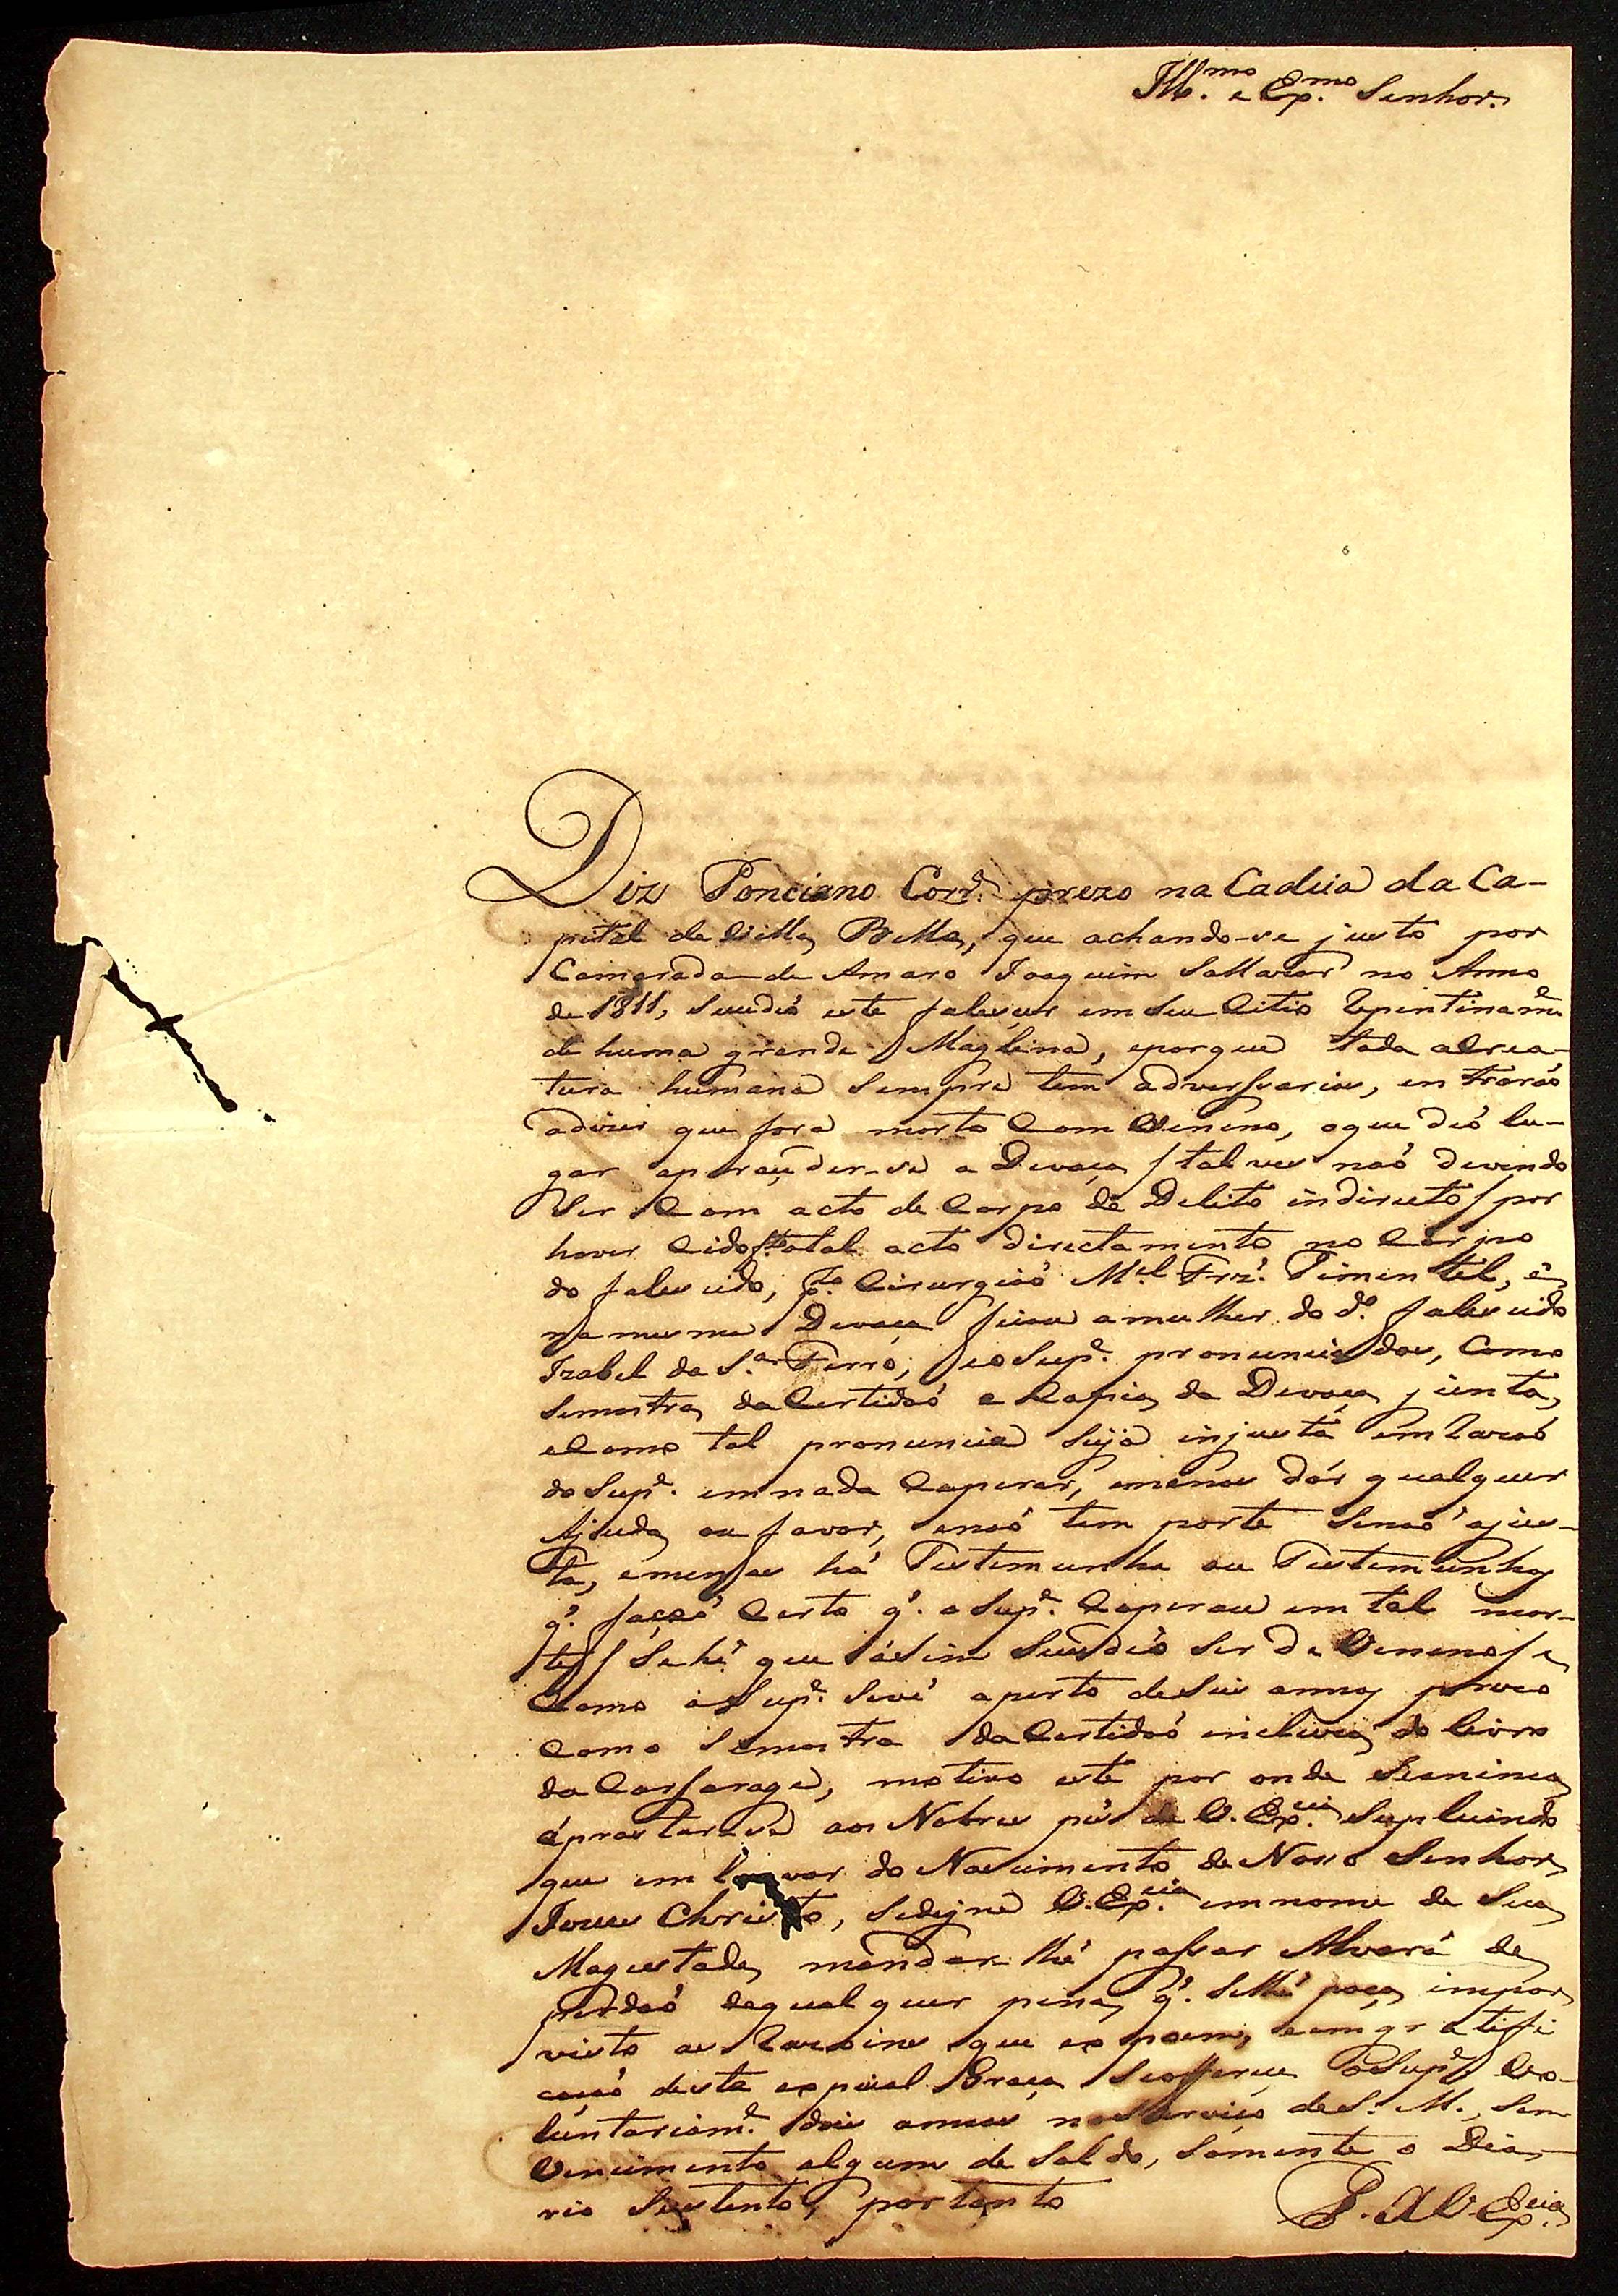 Ill.mo e Ex.mo Senhor.
Diz Ponciano Corr.ª prezo na Cadeia da Ca-
pital de Villa Bella, que achando-se justo por
Camarada de Amaro Joaquim no Anno
de 1811, sucedeo este falescer em seu Citio repentinam.e
de huma grande Maglina, eporque toda acrea-
tura humana sempre tem adverssarios, entrarão
adizer que fora morto Com Veneno, oque deo lu-
gar aprasseder-se a Devaça / talves não devendo
Ser Com acto de Corpo de Delito indirecto / por
haver Cido f.to otal acto directamente no Corpo
do falescido, p.lo Cirurgião M.el Frz.' Pimentel, e
na mesma Devaça ficou amulher do d.o falescido
Izabel da S.ª Ferró, eo Sup.e pronunciados, Como
semostra da Certidão e Copia da Devaça junta,
eComo tal pronuncia seja injusta em razão
do Sup.e emnada Coperar, emenos dár qualquer
Ajuda ou favor, enaõ tem parte senaõ ajus-
ta, emenos há Testemunha ou Testemunhas
q.' façaõ Certo q.' o Sup.e Coperou em tal mor-
te / Se hé que ásim sucedeo ser de Veneno / e
Como o Sup.e sevê aperto deseis annos prezo
Como semostra da Certidaõ incluza do livro
da Carsarage, motivo este por onde seanima
áprostarse aos Nobres pés de V. Ex.cia Suplicando
que em louvor do Nascimento de Nosso Senhor
Jezus Christo, sedigne V. Ex.cia emnome de Sua
Magestade, mandar-lhé passar Alvará de
perdaõ dequalquer pena, q.' selhé possa impor
visto as razoins que expoem, eemgratifi
caçaõ desta expicial Graça seofferece oSup.e Vo-
luntariam.e dois annos noServiço deS. M., sem
Vencimento algum de Soldo, sómente o Dia-
rio Sustento, portanto
P. AV. Ex.cia